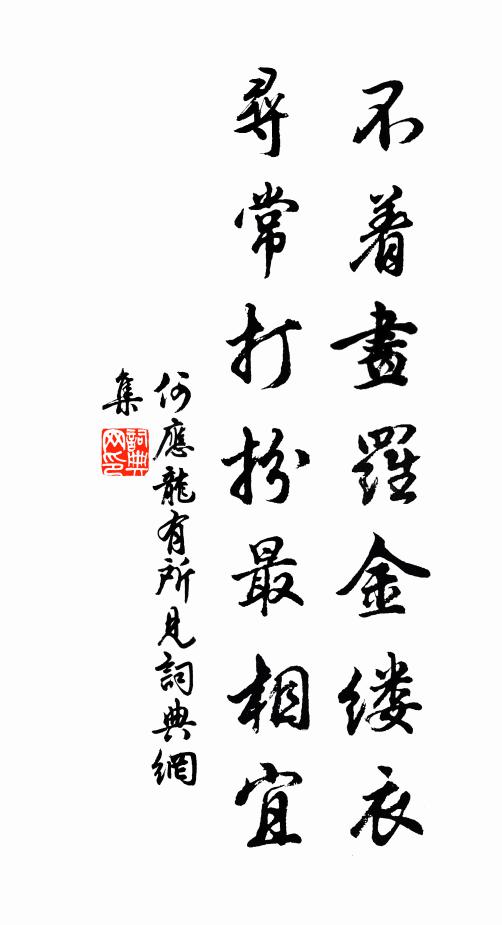 不着畫羅金缕衣
尋常打扮最相宜
何應龍有所見詞典網
集
詞典网印